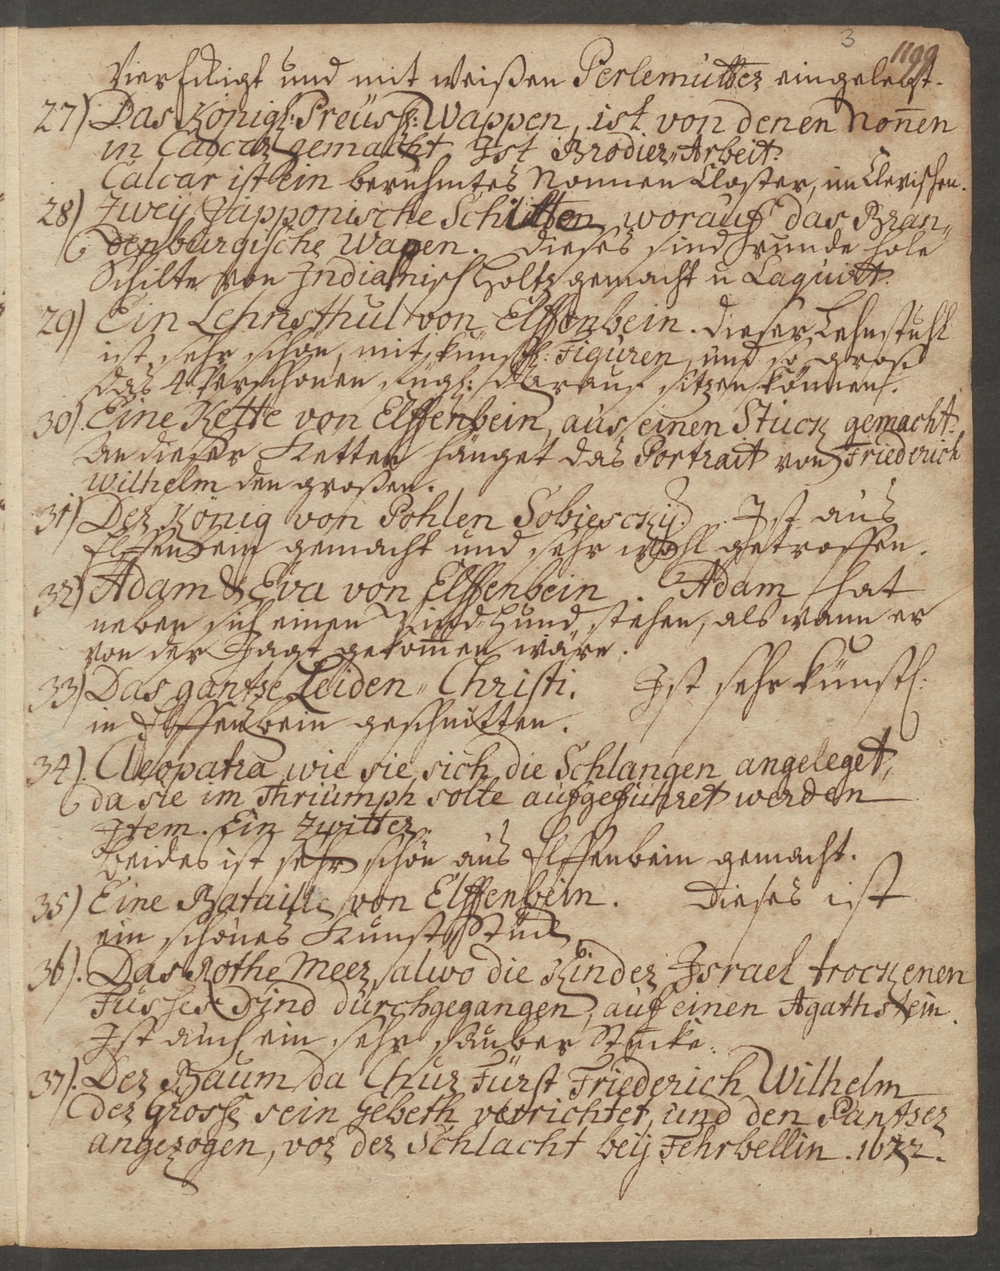 3
1199
Vierekigt und mit weißen Perlemutter eingelegt.
27) Das Königl: Preüsch: Wappen, ist von denen Nonen
in Calcar gemacht. Ist Brodier-Arbeit.
Calcar ist ein berühmtes Nonnen Closter, im Clevischen.
28) Zweij Japponische Schilten, worauf das Bran„
denburgische Wapen. Dieses sind runde hole
Schilte von Indianisch Holtz gemacht u Laquirt.
29) Ein Lehnsthul von Elffenbein. dieser Lehnstuhl
ist sehr schön, mit künstl: Figuren, und so groß
das 4 Perschonen fügl: darauf sitzen können.
30) Eine Kette von Elffenbein, aus einen Stück gemacht.
An dieser Ketten hänget das Portrait von Friederich
Wilhelm den großen.
31) Der König von Pohlen Sobiesckij. Ist aus
Elffenbein gemacht und sehr wohl getroffen.
32) Adam & Eva von Elffenbein. Adam hat
neben sich einen Wind-Hund stehen, als wann er
von der Jagt gekomen wäre.
33) Das gantse Leiden„ Christi. Ist sehr künstl:
in Elffenbein geschnitten.
34). Cleopatra wie sie sich die Schlangen angeleget,
da sie im Thriumph solte aufgeführet werden
Item. Ein Zwitter.
Beides ist sehr schön aus Elffenbein gemacht.
35) Eine Bataille von Elffenbein. Dieses ist
ein schönes Kunst Stück
36). Das Rothe Meer, alwo die Kinder Israel trockenen
Fusses sind durchgegangen, auf einen Agathstein.
Ist auch ein sehr sauber Stücke.
37). Der Baum da Chur Fürst Friederich Wilhelm
der Grosse sein Gebeth verrichtet, und den Pantser
angezogen, vor der Schlacht beij Fehrbellin.